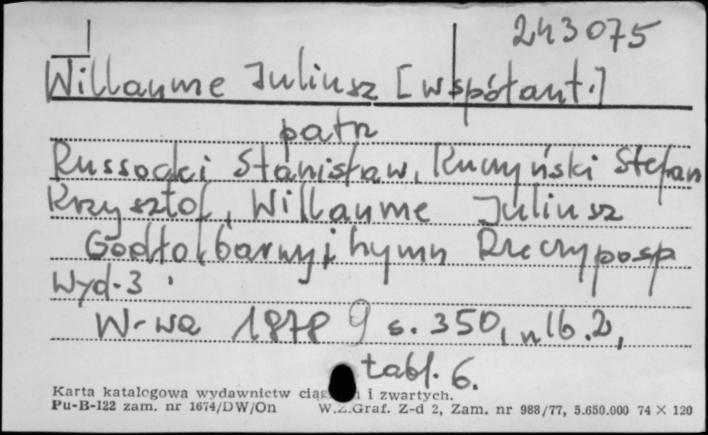 243075
Willaume Juliusz [współaut.]
patrz
Russocki Stanisław, Kuczyński Stefan
Krzysztof, Willaume Juliusz
Godło, barwy i hymn Rzeczyposp
Wyd. 3
W-wa 1978 9 s. 350, nlb. 2,
tabl. 6.
Karta katalogowa wydawnictw i zwartych.
Pu-B-122 zam. nr 1674/DW/On W.Z.Graf. Z-d 2, Zam. nr 988/77, 5.650.000 74 × 120